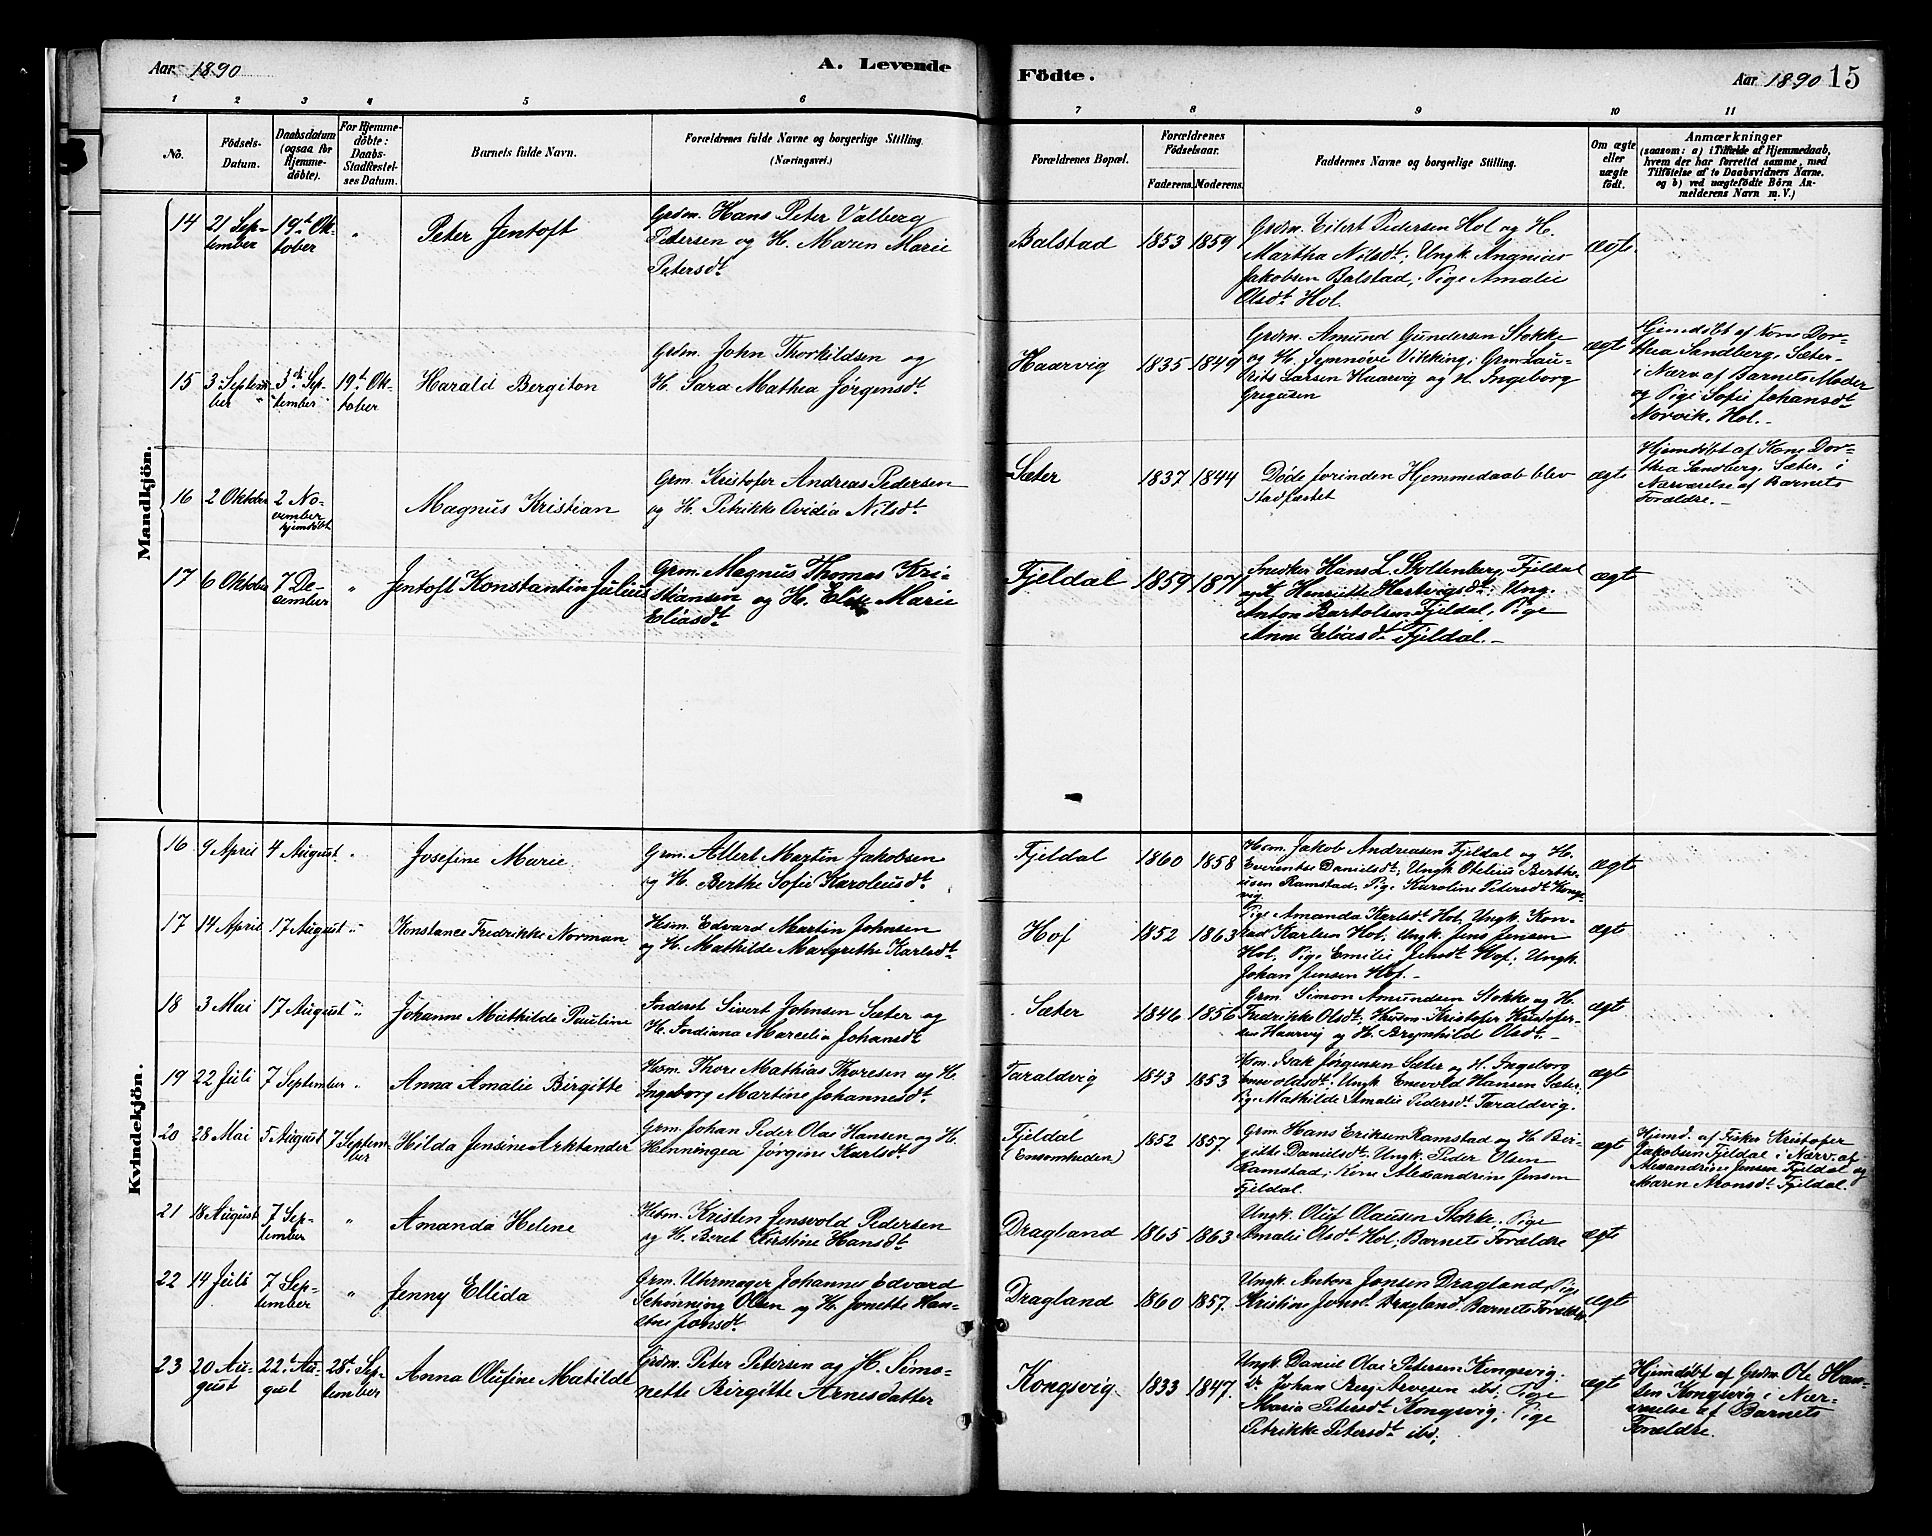 Aar. 1890
A. Levende
Födte.
Aar 1890
15
1 2 3 4 5 6
7 8 9 10 11
No.
Födsels-
Datum.
Daabsdatum
(ogsaa for
Hjemme-
döbte).
For Hjemme-
döbte:
Daabs-
Stadfæstel-
ses Datum.
Barnets fulde Navn.
Forældrenes fulde Navne og borgerlige Stilling.
(Næringsvei.)
Forældrenes Bopæl.
Forældrenes
Födselsaar.
Faderens. Moderens.
Faddernes Navne og borgerlige Stilling.
Om ægte
eller
uægte
födt.
Anmærkninger
(saasom: a) i Tilfælde af Hjemmedaab,
hvem der har forrettet samme, med
Tilföielse af to Daabsvidners Navne,
og b) ved uægtefödte Börn An-
melderens Navn m.V.)
Mandkjön.
14
21 Sep-
tember
19d Ok-
tober
"
Peter Jentoft
Grdm. Hans Peter Valberg
Petersen og H. Maren Marie
Petersdt
Balstad
1853
1859
Grdm. Eilert Pedersen Hol og H.
Martha Nilsdt; Ungk. Angnius
Jakobsen Balstad; Pige Amalie
Olsdt Hol.
ægte
15
3 Septem-
ber
3di Sep-
tember
19d Ok-
tober
Harald Bergiton
Grdm. John Thorkildsen og
H. Sara Mathea Jörgensdt
Haarvig
1835
1849
Grdm. Amund Gundersen Stokke
og H. Vikking; Grm. Lau-
rits Larsen Haarvig og H. Ingeborg
Gregusen
ægte
Hjemdöbt af Kone Dor-
thea Sandberg. Sæter-
i Nærv. af Barnets Moder
og Pige Sofie Johansdt
Norvik. Hol.-
16
2 Oktober
2 No-
vember
hjemdöbt
Magnus Kristian
Grm. Kristofer Andreas Pedersen
og H. Petrikke Ovidia Nilsdt
Sæter
1837
1844
Döde forinden Hjemmedaab blev
Stadfæstet
ægte
Hjemdöbt af Kone Dor-
thea Sandberg, Sæter, i
Nærværelse af Barnets
Forældre.-
17
6 Oktober
7 De-
cember
"
Jentoft Konstantin Julius
Grm. Magnus Thomas Kri-
stiansen og H. Elise Marie
Eliasdt
Fjeldal
1859
1871
Snedker Hans L. Stoltenberg, Fjeldal
og H. Henriette Hartvigsdt; Ung.
Anton Bartolsen Fjeldal, Pige
Anne Eliasdt Fjeldal.-
ægte
Kvindekjön.
16
9 April
4 August
"
Josefine Marie
Grm. Albert Martin Jakobsen
og H. Berthe Sofie Karoliusdt
Fjeldal
1860
1858
Hsm. Jakob Andreasen Fjeldal og H.
Everentse Danielsdt; Ungk Otelius Berthe-
usen Ramstad, Pige Karoline Petersdt Kongs-
vig
ægte
17
14 April
17 August
"
Konstance Fredrikke Norman
Hsm. Edvard Martin Johnsen
og H. Mathilde Margrethe Karlsdt
Hof
1852
1863
Pige Amanda Karlsdt Hol, Ungk. Kon-
rad Karlsen Hol; Ungk. Jens Jensen
Hol, Pige Emilie Jensdt Hof; Ungk.
Johan Jensen Hof.-
ægte
18
3 Mai
17 August
"
Johanne Mathilde Pauline
Inderst Sivert Johnsen Sæter og
H. Indiana Marcelia Johansdt
Sæter
1846
1856
Grm. Simon Amundsen Stokke og H.
Fredrikke Olsdt; Husm. Kristofer Kristofer-
sen Haarvig og H. Brynhild Olsdt.-
ægte
19
22 Juli
7 September
"
Anna Amalie Birgitte
Hsm. Thore Mathias Thoresen og H.
Ingeborg Martine Johannesdt.
Taraldvig
1843
1853
Hsm. Isak Jörgensen Sæter og H. Ingeborg
Enevoldsdt; Ungk Enevold Hansen Sæter,
Pig. Mathilde Amalie Pedersdt Taraldvig.
ægte
20
28 Mai
5 August
7 Septem-
ber
Hilda Jensine Arktander
Grm. Johan Peder Olai Hansen og H.
Henningea Jörgine Karlsdt.
Fjeldal
(Ensomheden)
1852
1857.
Grm. Hans Eriksen Ramstad og H. Bir-
gitte Danielsdt; Ungk. Peder Olsen
Ramstad; Kone Alexandrine Jensen
Fjeldal.
ægte
Hjemd. af Fisker Kristofer
Jakobsen Fjeldal i Nærv. af
Alexandrine Jensen Fjeldal og
Maren Aronsdt Fjeldal.
21
18 August
7 Sep-
tember
"
Amanda Helene
Hsm. Kristen Jensvold Pedersen
og H. Beret Kirstine Hansdt
Dragland
1865
1863
Ungk. Oluf Olausen Stokke, Pige
Amalie Olsdt Hol, Barnets Forældre
ægte
22
14 Juli
7 Sep-
tember
"
Jenny Ellida
Grm. Uhrmager Johannes Edvard
Schönning Olsen og H. Jonette Han-
sine Jonsdt.
Dragland
1860
1857.
Ungk. Anton Jonsen Dragland, Pige
Kristine Jonsd. Dragland. Barnets Forældre
ægte
23
20 Au-
gust
22d Au-
gust
28d Sep-
tember
Anna Olufine Matilde
Grdm. Peter Petersen og H. Simo-
nette Birgitte Arnesdatter
Kongsvig
1833
1847.
Ungk. Daniel Olai Petersen Kongsvig.
Do Johan Berg Arvesen ibd; Pige
Maria Petersdt Kongsvig; Pige
Petrikke Petersdt ibd;
ægte
Hjemdöbt af Grdm Ole Han-
sen Kongsvig i Nær-
værelse af Barnets
Forældre.